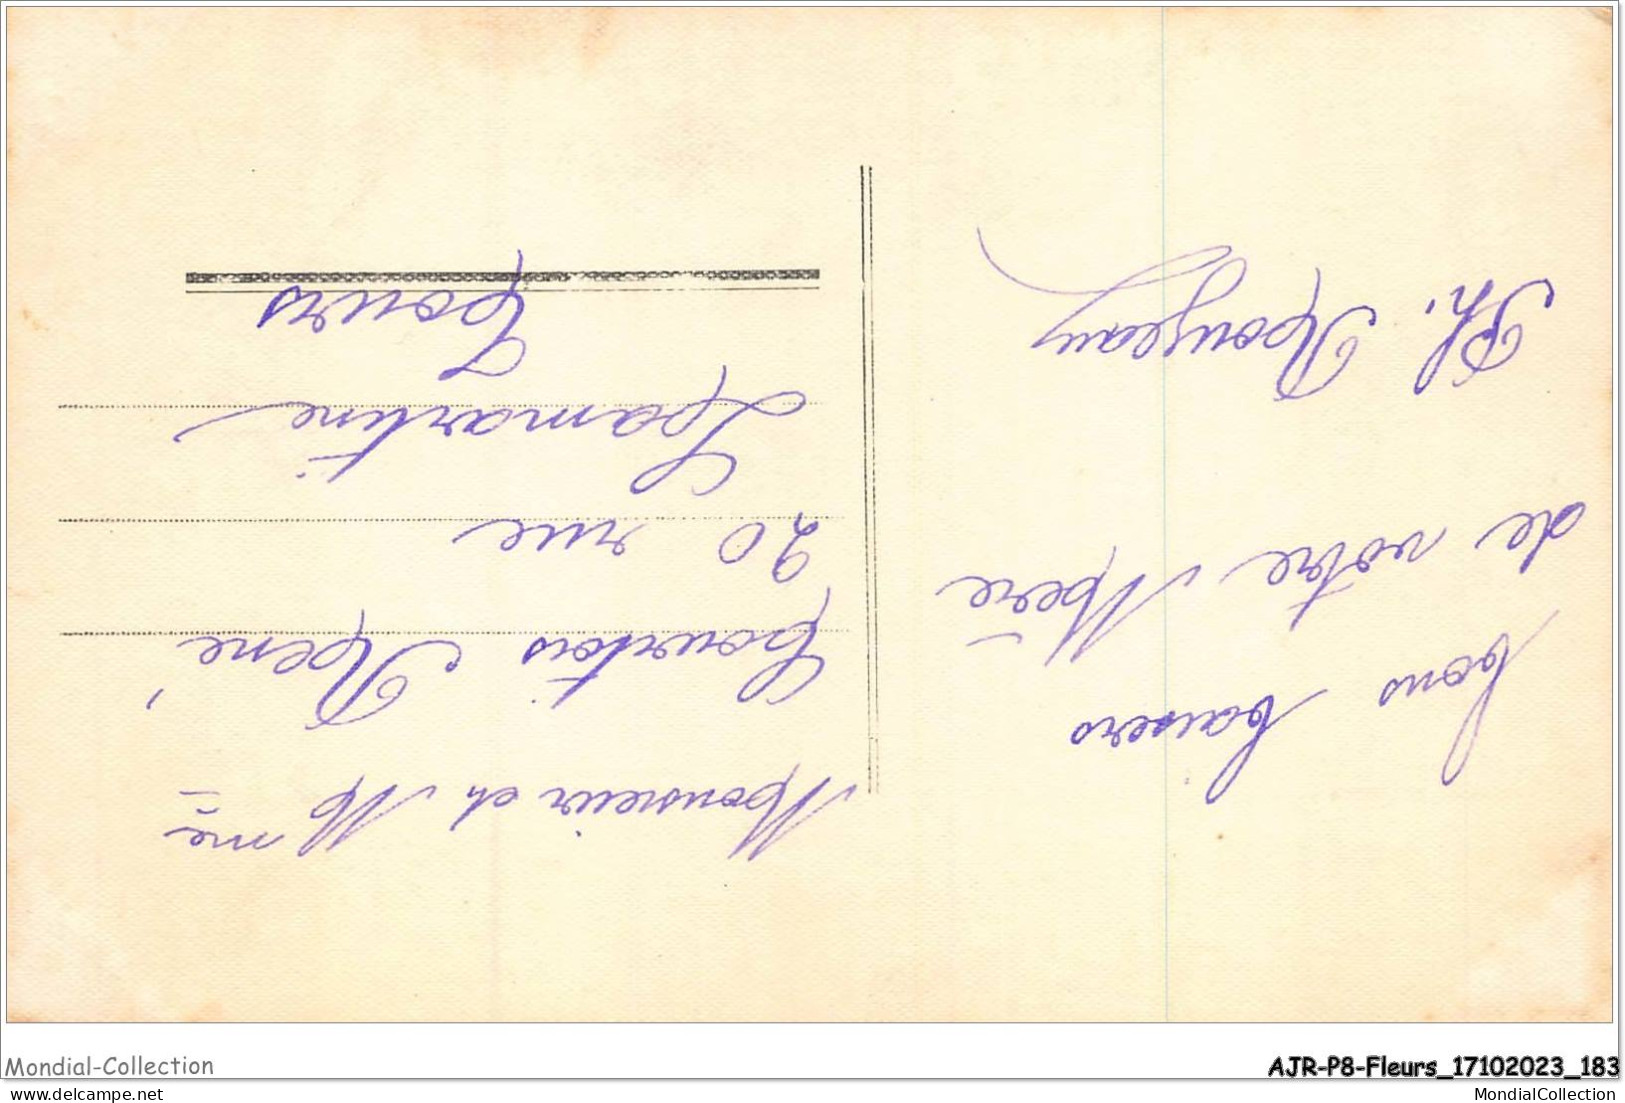 bons baisers
de votre Mère
Ph. Rougeau
Monsieur et Mme
Courtois René
20 rue
Lamartine
Tours
Mondial-Collection
AJR-P8-Fleurs_17102023_183
www.delcampe.net
MondialCollection